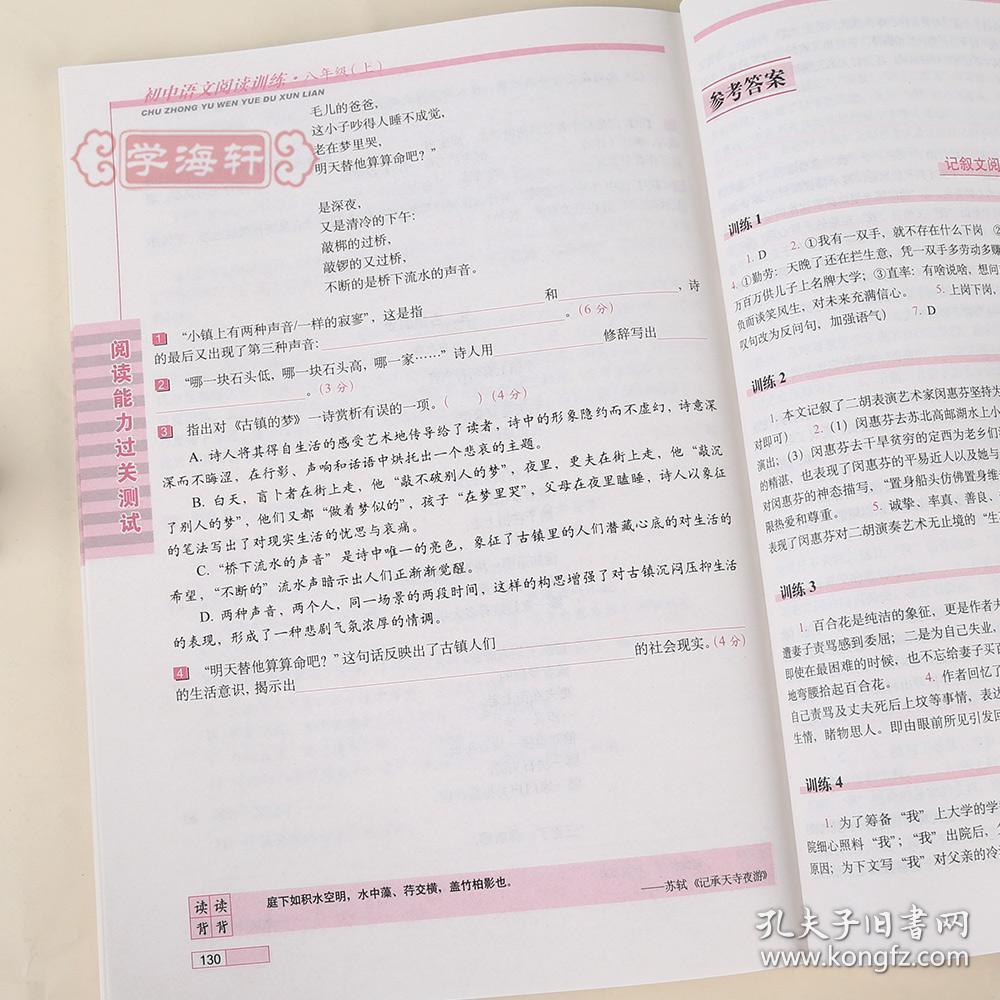 初中语文阅读训练·八年级(上)
CHU ZHONG YU WEN YUE DU XUN LIAN
学海轩
毛儿的爸爸，
这小子吵得人睡不成觉，
老在梦里哭，
明天替他算算命吧？”
是深夜，
又是清冷的下午：
敲梆的过桥，
敲锣的又过桥，
不断的是桥下流水的声音。
阅读能力过关测试
1 “小镇上有两种声音/一样的寂寥”，这是指 和 ，诗
的最后又出现了第三种声音： 。(6分)
2 “哪一块石头低，哪一块石头高，哪一家……”诗人用 修辞写出
。(3分)
3 指出对《古镇的梦》一诗赏析有误的一项。( ) (4分)
A. 诗人将其得自生活的感受艺术地传导给了读者，诗中的形象隐约而不虚幻，诗意深
深而不晦涩，在行影、声响和话语中烘托出一个悲哀的主题。
B. 白天，盲卜者在街上走，他“敲不破别人的梦”，夜里，更夫在街上走，他“敲沉
了别人的梦”，他们又都“做着梦似的”，孩子“在梦里哭”，父母在夜里瞌睡，诗人以象征
的笔法写出了对现实生活的忧思与哀痛。
C. “桥下流水的声音”是诗中唯一的亮色，象征了古镇里的人们潜藏心底的对生活的
希望，“不断的”流水声暗示出人们正渐渐觉醒。
D. 两种声音，两个人，同一场景的两段时间，这样的构思增强了对古镇沉闷压抑生活
的表现，形成了一种悲剧气氛浓厚的情调。
4 “明天替他算算命吧？”这句话反映出了古镇人们
的生活意识，揭示出 的社会现实。(4分)
读读
背背
庭下如积水空明，水中藻、荇交横，盖竹柏影也。
——苏轼《记承天寺夜游》
130
参考答案
记叙文阅
训练1
1. D 2. ①我有一双手，就不存在什么下岗 ②
4. ①勤劳：天晚了还在拦生意，凭一双手多劳动多赚
万百万供儿子上名牌大学；③直率：有啥说啥，想问
负而谈笑风生，对未来充满信心。 5. 上岗下岗，
叹句改为反问句，加强语气) 7. D
训练2
1. 本文记叙了二胡表演艺术家闵惠芬坚持为
对即可) 2. (1) 闵惠芬去苏北高邮湖水上小
演出；(3) 闵惠芬去干旱贫穷的定西为老乡们演
的精湛，也表现了闵惠芬的平易近人以及她与
对闵惠芬的神态描写，“置身船头仿佛置身维
限热爱和尊重。 5. 诚挚、率真、善良、
表现了闵惠芬对二胡演奏艺术无止境的“生
训练3
1. 百合花是纯洁的象征，更是作者夫
遭妻子责骂感到委屈；二是为自己失业，
即使在最困难的时候，也不忘给妻子买百
地弯腰拾起百合花。 4. 作者回忆了
自己责骂及丈夫死后上坟等事情，表达
生情，睹物思人。即由眼前所见引发回
训练4
1. 为了筹备“我”上大学的学
院细心照料“我”；“我”出院后，
原因；为下文写“我”对父亲的冷
孔夫子旧书网
www.kongfz.com